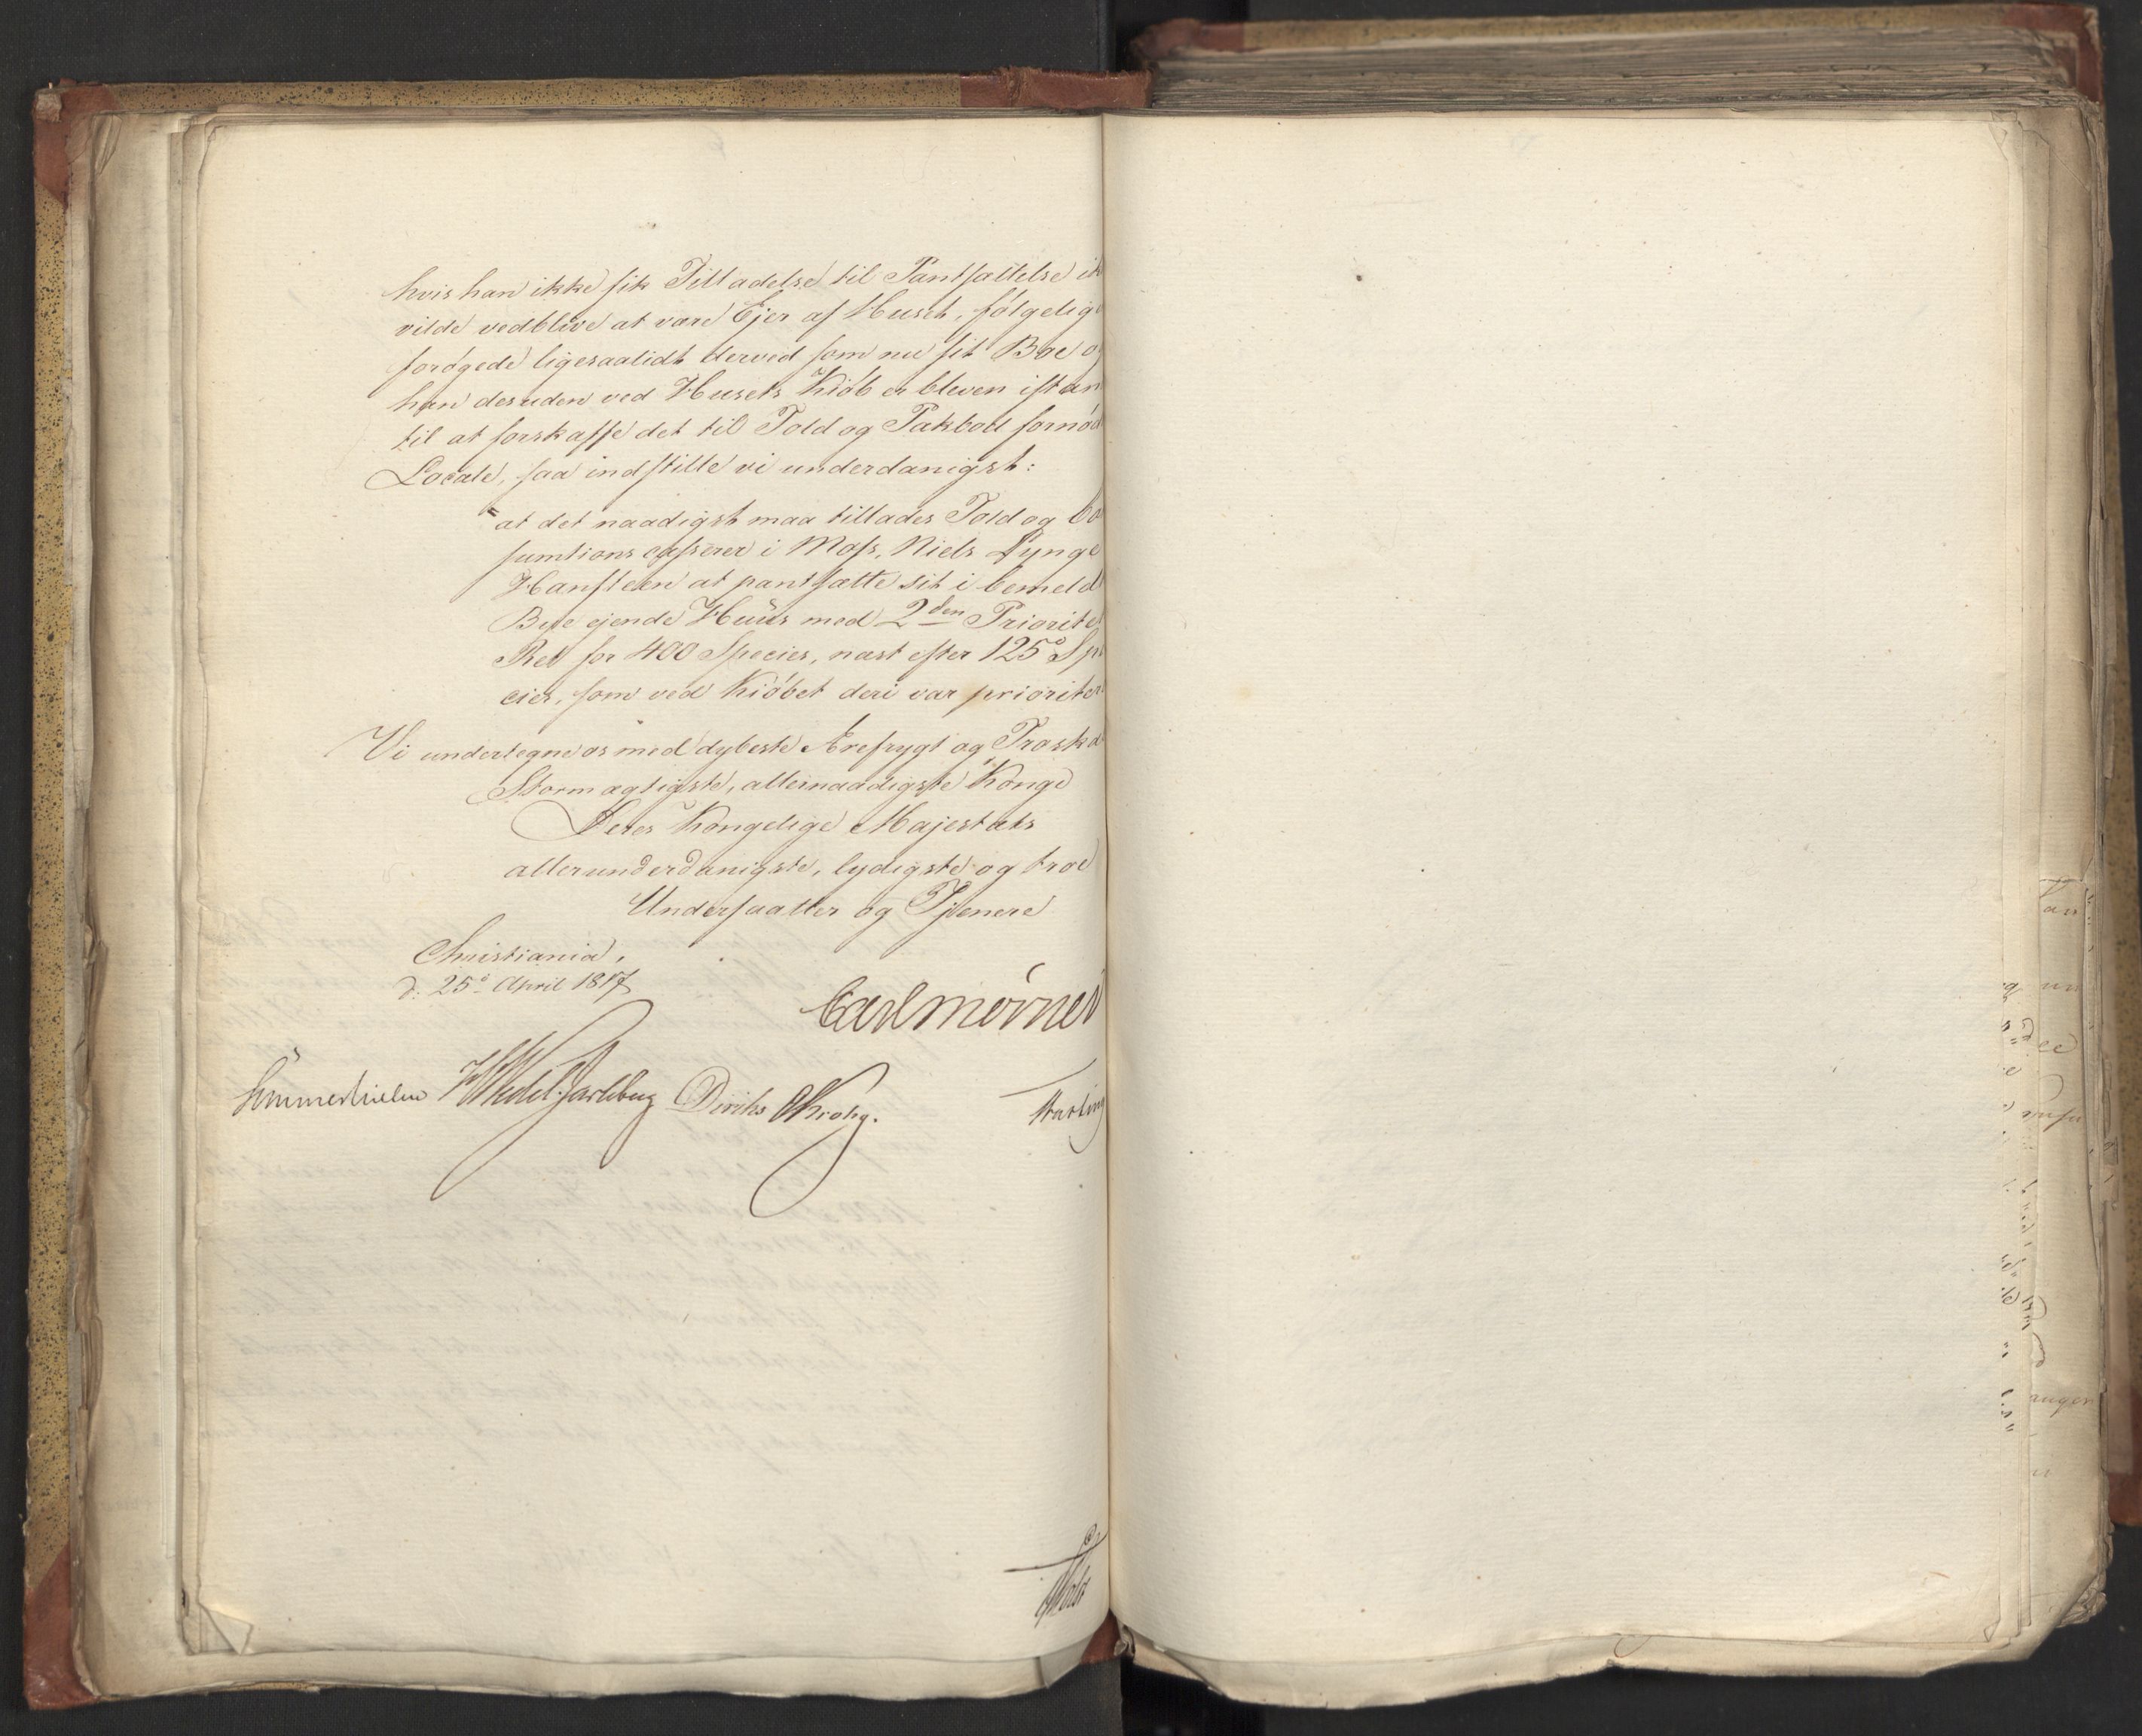 hvis han ikke fik Tilladelse til Pantsættelse ik
vilde vedblive at være Ejer af Huset, følgelig
forøgede ligesaalidt derved som nu sit Boe og
han desuden ved Husets Kiøb er bleven istan
til at forskaffe det til Told og Pakbod fornød
Locale, saa indstille vi underdanigst:
at det naadigst maa tillades Told og Co
sumtionscasserer i Moss, Niels Lynge
Hansteen at pantsætte sit i bemeld
Bye ejende Huus med 2den Priorite
Ret for 400 Species, næst efter 1250 Spe
cies, som ved Kiøbet deri var prioriter
Vi undertegne os med dybeste Ærefrygt og Troska
Stormægtigste, allernaadigste Konge
Deres Kongelige Majestæts
allerunderdanigste, lydigste og troe
Undersaatter og Tjenere
Christiania,
d: 25de April 1817
Carl Mörner
Sommerhielm HWedel-Jarlsberg Diriks CKrohg.
Holst